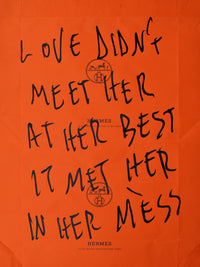 LOVE DIDN'T
MEET HER
AT HER BEST
HERMES
IT MET HER
IN HER MESS
HERMES